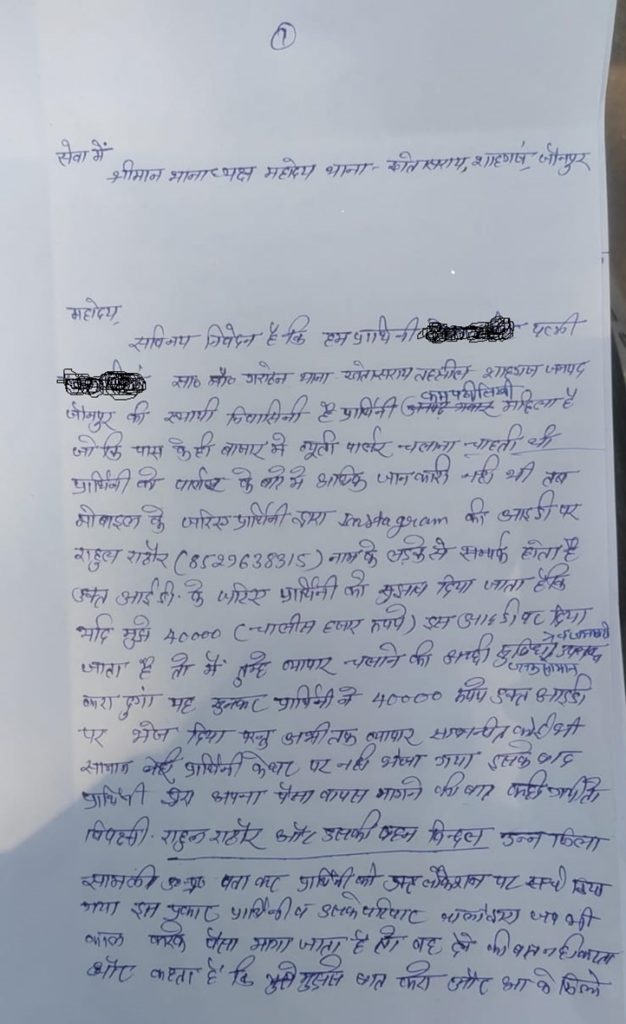 1
सेवा में
श्रीमान थानाध्यक्ष महोदय थाना - खेतासराय, शाहगंज, जौनपुर
महोदय,
सविनय निवेदन है कि हम प्रार्थिनी पत्नी
सा० मौ० थाना खेतासराय तहसील शाहगंज जनपद
जौनपुर की स्थायी निवासिनी है प्रार्थिनी कम पढ़ी लिखी महिला है
जो कि पास के ही बाजार में ब्यूटी पार्लर चलाना चाहती थी
प्रार्थिनी को पार्लर के बारे में अधिक जानकारी नही थी तब
मोबाइल के जरिए प्रार्थिनी द्वारा Instagram की आइडी पर
राहुल राठौर (8529638315) नाम के लड़के से सम्पर्क होता है
उक्त आईडी. के जरिए प्रार्थिनी को सुझाव दिया जाता है कि
यदि मुझे 40000 (चालीस हजार रुपये) इस आइडी पर दिया
जाता है तो मैं तुम्हे व्यापार चलाने की अच्छी सुविधा
करा दुंगा यह सुनकर प्रार्थिनी ने 40000 रुपये उक्त आइडी
पर भेज दिया परन्तु अभी तक व्यापार सम्बन्धित कोई भी
सामान प्रार्थिनी के घर पर नही भेजा गया इसके बाद
प्रार्थिनी द्वारा अपना पैसा वापस मांगने की बात कही गयी तो
विपक्षी. राहुल राठौर और उसकी बहन जिला
बता कर प्रार्थिनी को लोकेशन पर किया
गया इस प्रकार प्रार्थिनी व उसके परिवार वालो द्वारा जब भी
काल करके पैसा मांगा जाता है तो वह देने की बात नही करता
और कहता है कि मुझसे बात करो और आ के मिलो